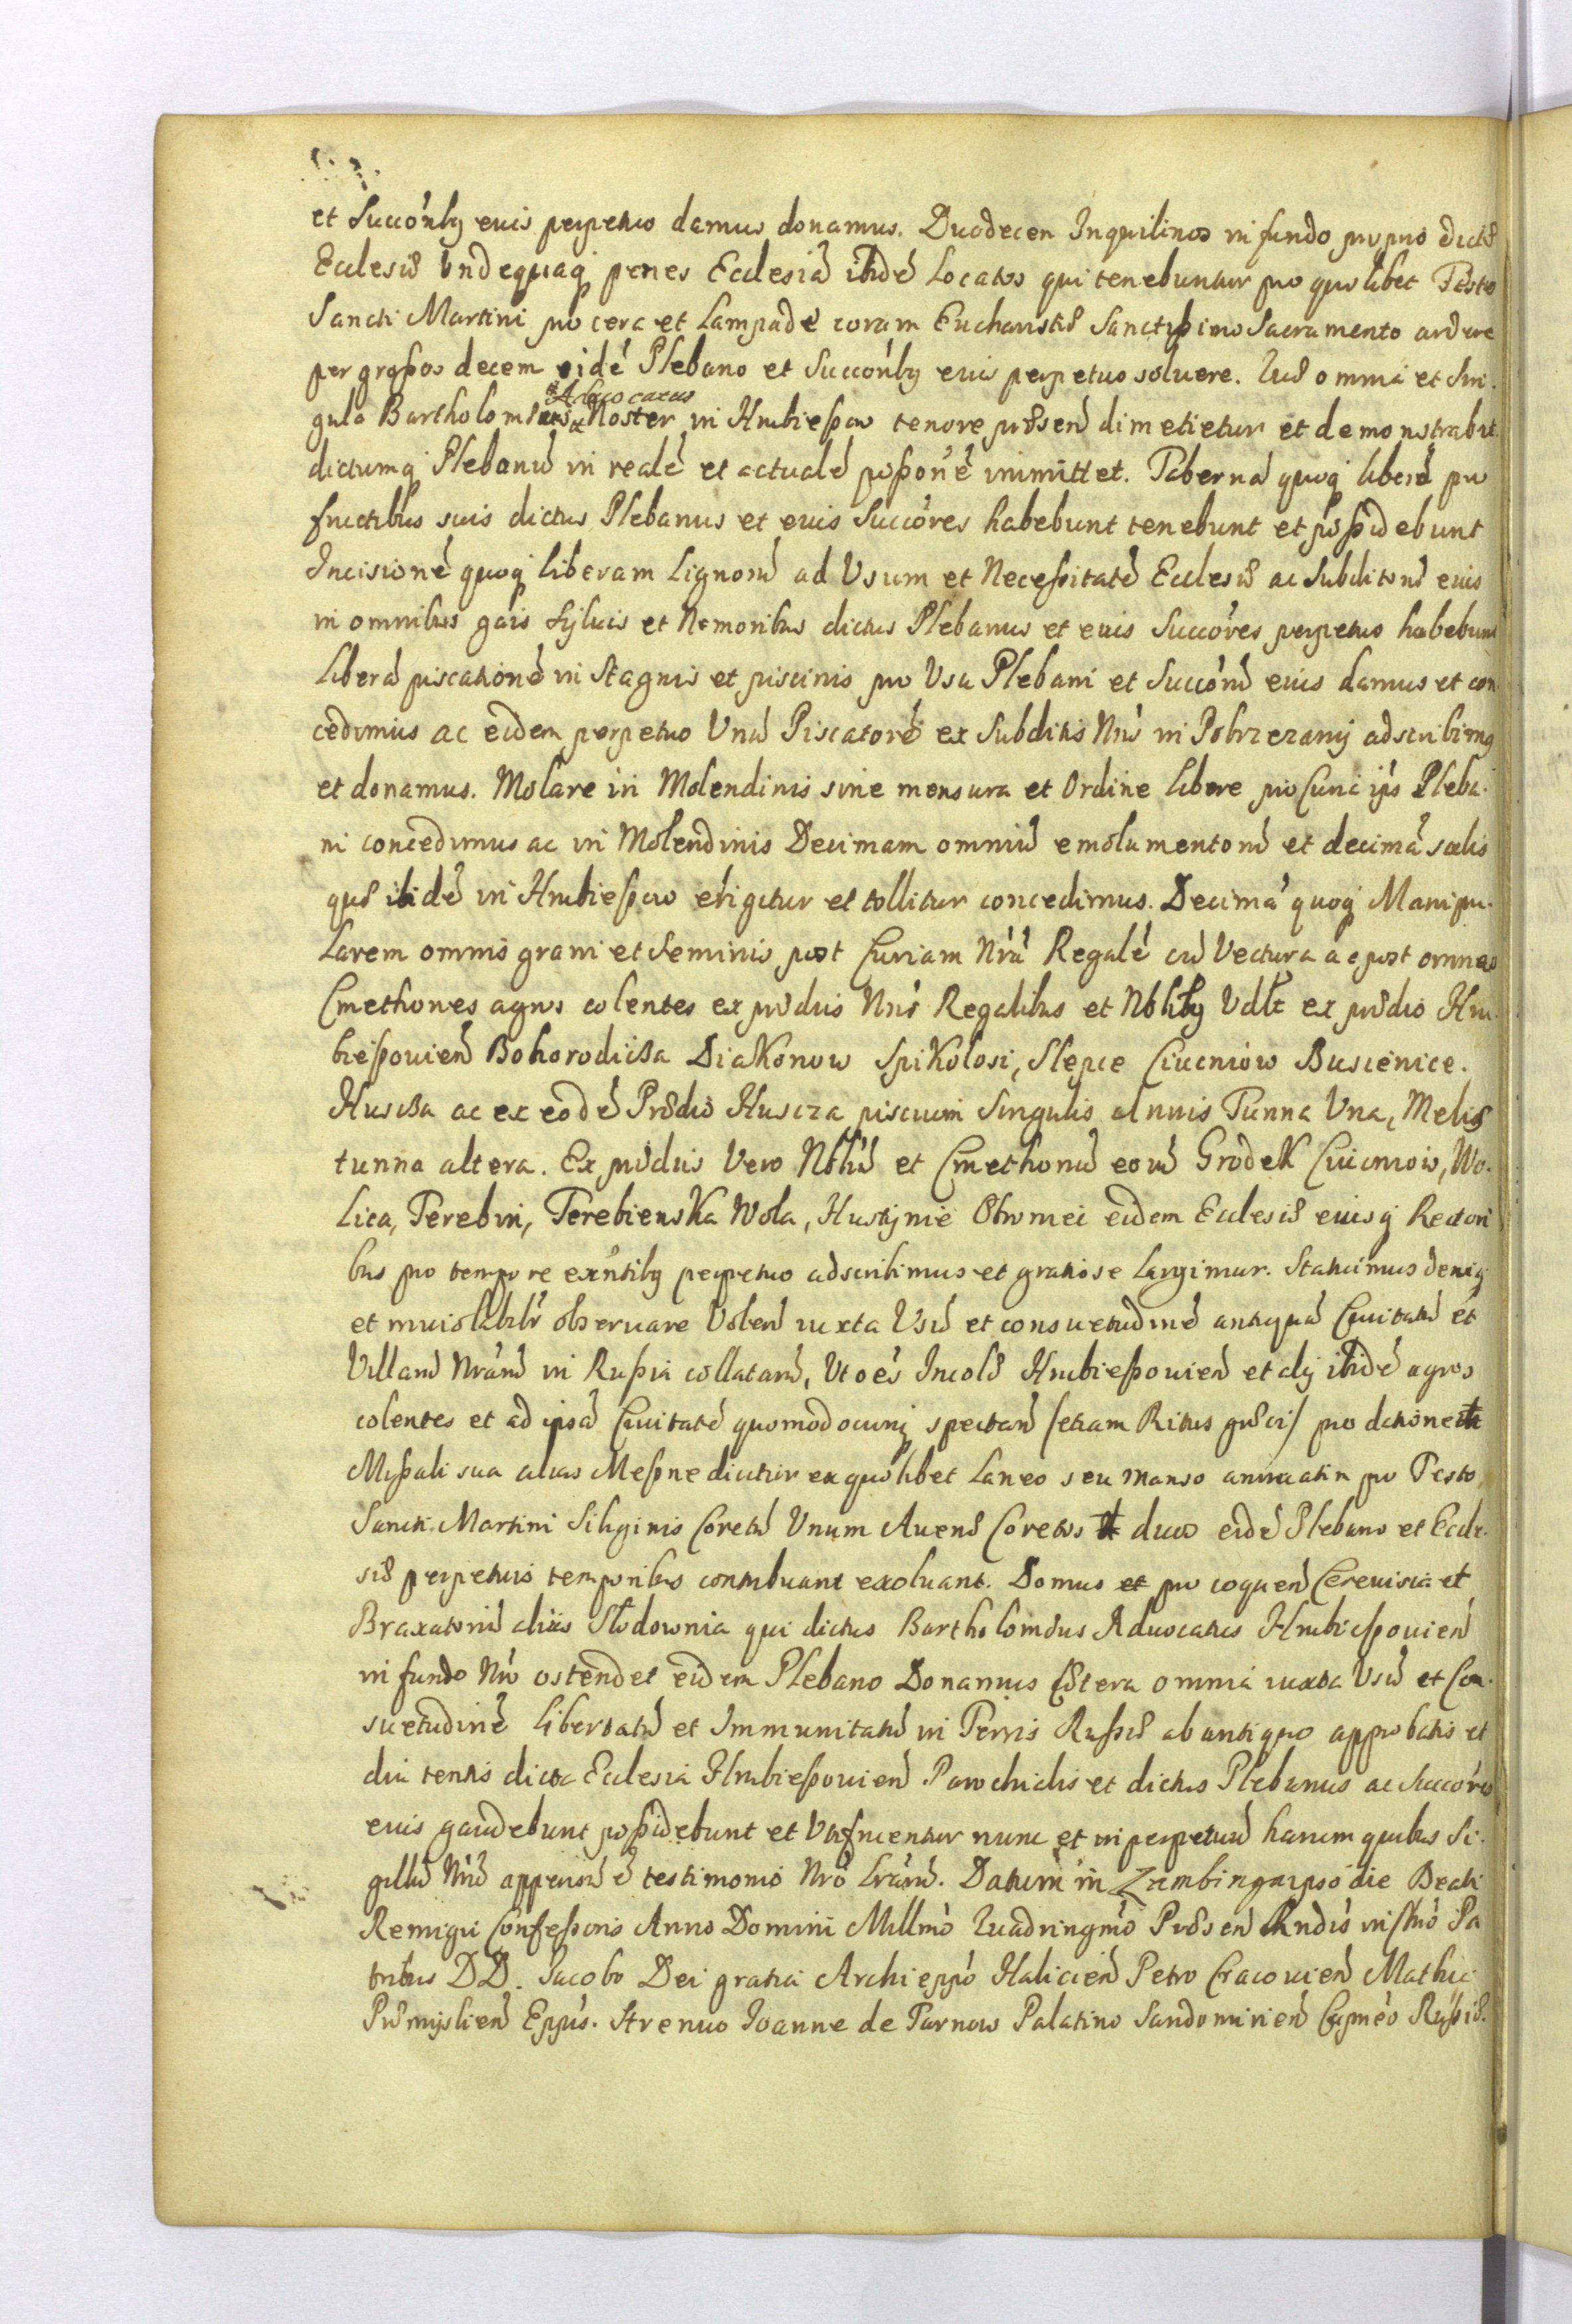 et Succońbȝ eius perpetuo damus donamus. Duodecem Inquilinos in fundo proprio dictæ
Ecclesiæ Undequaqȝ penes Ecclesiā ibidē Locatos qui tenebuntur pro quolibet Festo
Sancti Martini pro cera et Lampade coram Eucharistiæ Sanctissimo Sacramento ardere
per grossos decem eidē Plebano et Succońbȝ eius perpetuo soluere. Quæ omnia et Sin-
gula Bartholomæus Aduocatus Noster in Hrubiessow tenore præsen̄ dimetietur et demonstrabit
dictumqȝ Plebanū in realē et actualē possōnē inimittet. Tabernā quoqȝ liberā pro
fructibus suis dictus Plebanus et eius Succōres habebunt tenebunt et possidebunt
Incisionē quoqȝ liberam Lignorū ad Usum et Necessitatē Ecclesiæ ac Subditorū eius
in omnibus gais Syluis et Nemoribus dictus Plebanus et eius Succōres perpetuo habebunt
Liberā piscationē in Stagnis et piscinis pro Usu Plebani et Succōrū eius damus et con-
cedimus ac eidem perpetuo Unū Piscatorē ex Subditis Nrīs in Pobrzezany adscribimȝ
et donamus. Molare in Molendinis sine mensura et Ordine libere pro Curia ip̄s Pleba-
ni concedimus ac in Molendinis Decimam omniū emolumentorū et decimā salis
quæ ibidē in Hrubiessow exigitur et tollitur concedimus. Decimā quoqȝ Manipu-
larem omnis grani et Seminis post Curiam Nrā Regalē cū Vectura ac post omnes
Cmethones agros colentes ex prædiis Nrīs Regalibus et Nobilibȝ Vdlt ex prædio Hru-
biessouien̄ Bohorodicza Diakonow Spikolosi, Slepce Ciucniow Buscienice.
Huscza ac ex eodē Prædio Huscza piscium Singulis annis Tunna Una, Mellis
tunna altera. Ex prædiis Vero Nobliū et Cmethonū eorū Grodek Ciucniow, Wo-
lica, Terebin, Terebienska Wola, Hustynie Obromei eidem Ecclesiæ eiusqȝ Rectori
bus pro tempore exn̄tibȝ perpetuo adscribimus et gratiose largimur. Statuimus deniqȝ
et inuiolablr̄ obseruare Volen̄ iuxta Usū et consuetudinē antiquā Ciuitatū et
Villarū Nrārū in Russia collatarū, Ut oēs Incolæ Hrubiessouien̄ et alij ibidē agros
colentes et ad ipsā Ciuitatē quomodocunqȝ spectan̄ /etiam Ritus græci/ pro datione
Missali sua alias Messne dicitur ex quolibet Laneo seu manso annuatim pro Festo
Sancti Martini Siliginis Coretū Unum Auenæ Coretos duos eidē Plebano et Eccle-
siæ perpetuis temporibus contribuant exoluant. Domus et pro coquen̄ Cereuisia et
Braxatoriū alias Slodownia qui dictus Bartholomæus Aduocatus Hrubiessouien̄
in fundo Nrō ostendet eidem Plebano Donamus Cætera omnia iuxta Usū et Con-
suetudinē Libertatū et Immunitatū in Terris Russiæ ab antiquo approbatis et
diu tentis dicta Ecclesia Hrubiessouien̄ Parochialis et dictus Plebanus ac Succōres
eius gaudebunt possidebunt et Utifruentur nunc et in perpetuū harum quibus Si-
gillū Nrū appensū ē testimonio Nrō Lrārū. Datum in Zimbirza ipso die Beati
Remigii Confessoris Anno Domini Millmō Quadringmō Præsen̄ Rndīs in Xtō Pa
tribus DD. Jacobo Dei gratia Archieppō Haliciен̄ Petro Cracouien̄ Mathia
Præmyslien̄ Eppīs. Strenuo Joanne de Tarnow Palatino Sandomirien̄ Capnēo Russiæ.